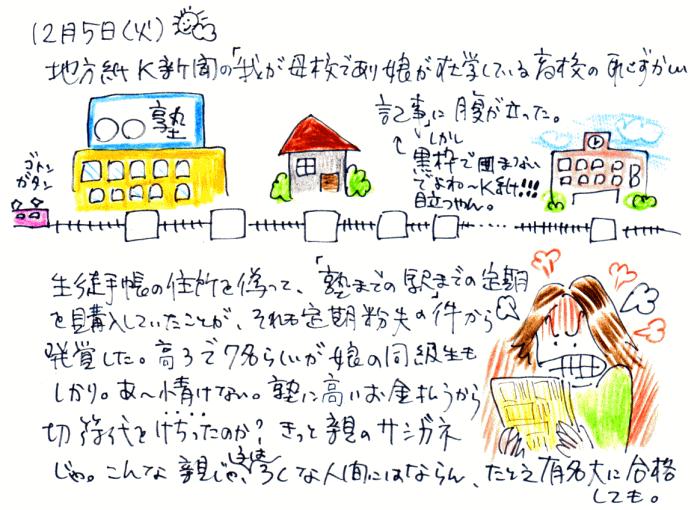 12月5日(火)
地方紙K新聞の「我が母校であり娘が在学している高校の恥ずかしい
記事」に腹が立った。
しかし
黒枠で囲まない
でよね〜K紙!!!
目立つやん。
○○塾
ゴトン
ガタン
生徒手帳の住所を偽って、「塾までの駅」までの定期
を購入していたことが、それも定期紛失の」件から
発覚した。高3で7名らしいが娘の同級生も
しかり。あ〜情けない。塾に高いお金払うから
切符代をけちったのか?きっと親のサシガネ
じゃ。こんな親じゃ、ろくな人間にはならん、たとえ有名大に合格
しても。